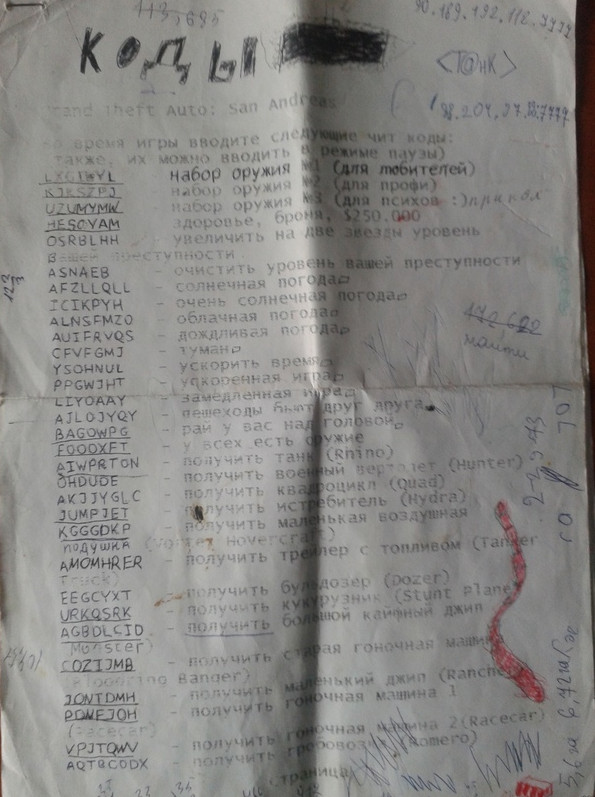 113 5695
90.189.192.118.7777
КОДЫ
<T@нк>
Grand Theft Auto: San Andreas
Во время игры вводите следующие чит коды:
также, их можно вводить в режиме паузы)
LXGIWYL - набор оружия №1 (для любителей)
KJKSZPJ - набор оружия №2 (для профи)
UZUMYMW - набор оружия №3 (для психов :) прикол
HESOYAM - здоровье, броня, $250.000
OSRBLHH - увеличить на две звезды уровень
вашей преступности
ASNAEB - очистить уровень вашей преступности
AFZLLQLL - солнечная погода
ICIKPYH - очень солнечная погода
ALNSFMZO - облачная погода
AUIFRVQS - дождливая погода
CFVFGMJ - туман
YSOHNUL - ускорить время
PPGWJHT - ускоренная игра
LIYOAAY - замедленная игра
AJLOJYQY - пешеходы бьют друг друга
BAGOWPG - рай у вас над головой
FOOOXFT - у всех есть оружие
AIWPRTON - получить танк (Rhino)
OHDUDE - получить военный вертолет (Hunter)
AKJJYGLC - получить квадроцикл (Quad)
JUMPJET - получить истребитель (Hydra)
KGGGDKP - получить маленькая воздушная
подушка (Vortex Hovercraft)
AMOMHRER - получить трейлер с топливом (Tanker
Truck)
EEGCYXT - получить бульдозер (Dozer)
URKQSRK - получить кукурузник (Stunt Plane)
AGBDLCID - получить большой кайфный джип
(Monster)
CQZIJMB - получить старая гоночная машина
(Bloodring Banger)
JQNTDMH - получить маленький джип (Rancher)
PDNEJOH - получить гоночная машина 1
(Racecar)
VPJTQWV - получить гоночная машина 2(Racecar)
AQTBCODX - получить гробовоз (Romero)
страница
найти